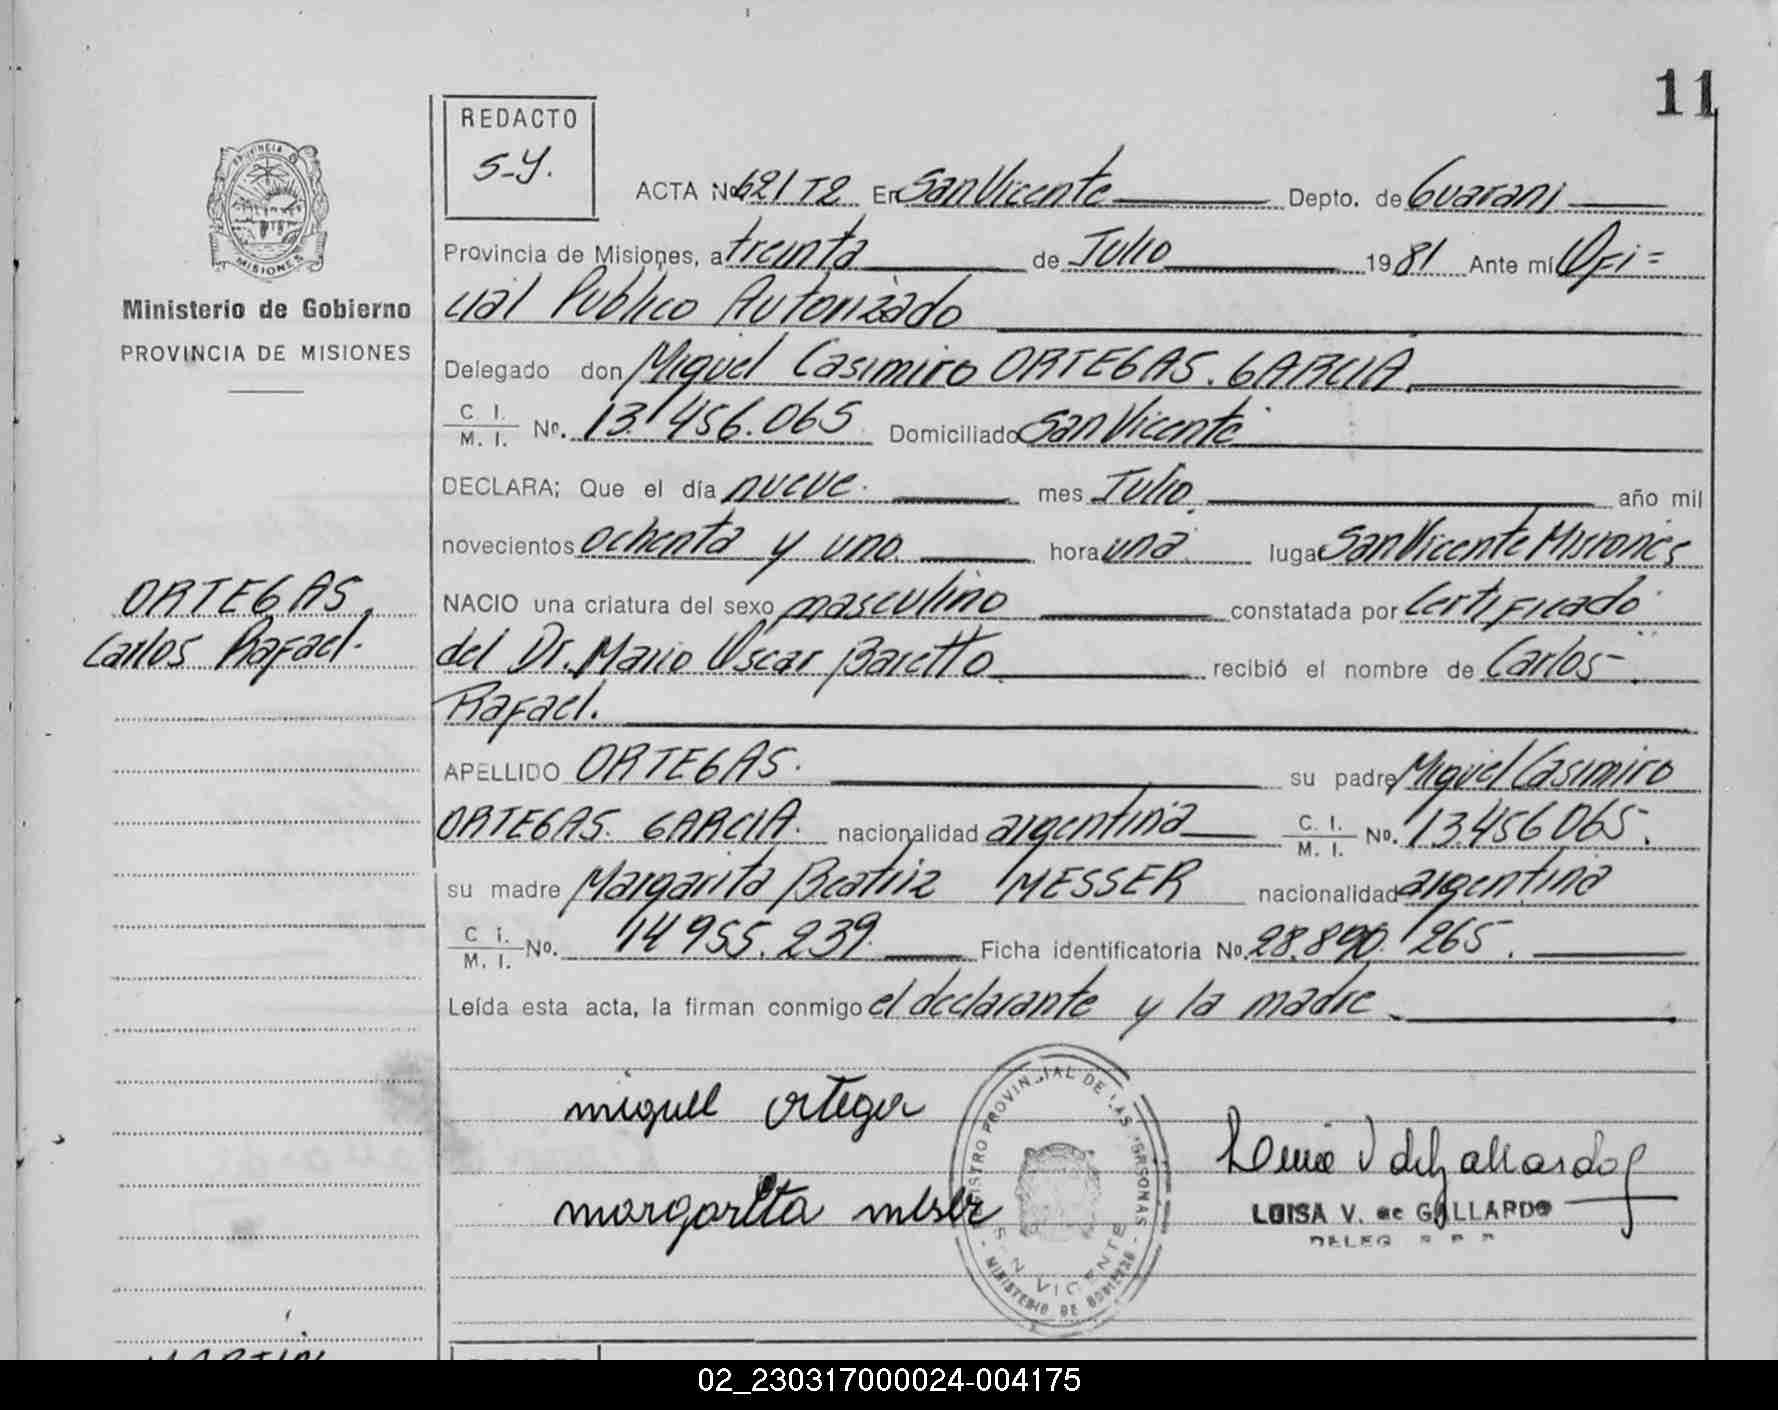 11
REDACTO
S-Y.
PROVINCIA D
MISIONES
Ministerio de Gobierno
PROVINCIA DE MISIONES
ACTA Nº 621 T2 En San Vicente Depto. de Guarani
Provincia de Misiones, a treinta de Julio 1981 Ante mí Ofi=
cial Publico Autorizado
Delegado don Miguel Casimiro ORTEGAS. GARCIA.
C. I. / M. I. Nº. 13.456.065 Domiciliado San Vicente
DECLARA; Que el día nueve. mes Julio año mil
novecientos ochenta y uno. hora una. lugar San Vicente Misiones
ORTEGAS,
Carlos Rafael.
NACIO una criatura del sexo masculino constatada por Certificado
del Dr. Mario Oscar Baretto recibió el nombre de Carlos-
Rafael.
APELLIDO ORTEGAS. su padre Miguel Casimiro
ORTEGAS. GARCIA. nacionalidad argentina C. I. / M. I. Nº. 13.456065.
su madre Margarita Beatriz MESSER nacionalidad argentina
C. I. / M. I. Nº. 14955.239. Ficha identificatoria Nº. 28.890 265.
Leída esta acta, la firman conmigo el declarante y la madre.
miguel ortega
margarita meser
REGISTRO PROVINCIAL DE LAS PERSONAS
SAN VICENTE
MINISTERIO DE GOBIERNO
Luisa V de Gallardo
LUISA V. de GALLARDO
DELEG. R. P. P.
MARTIN
REDACTO
02_230317000024-004175